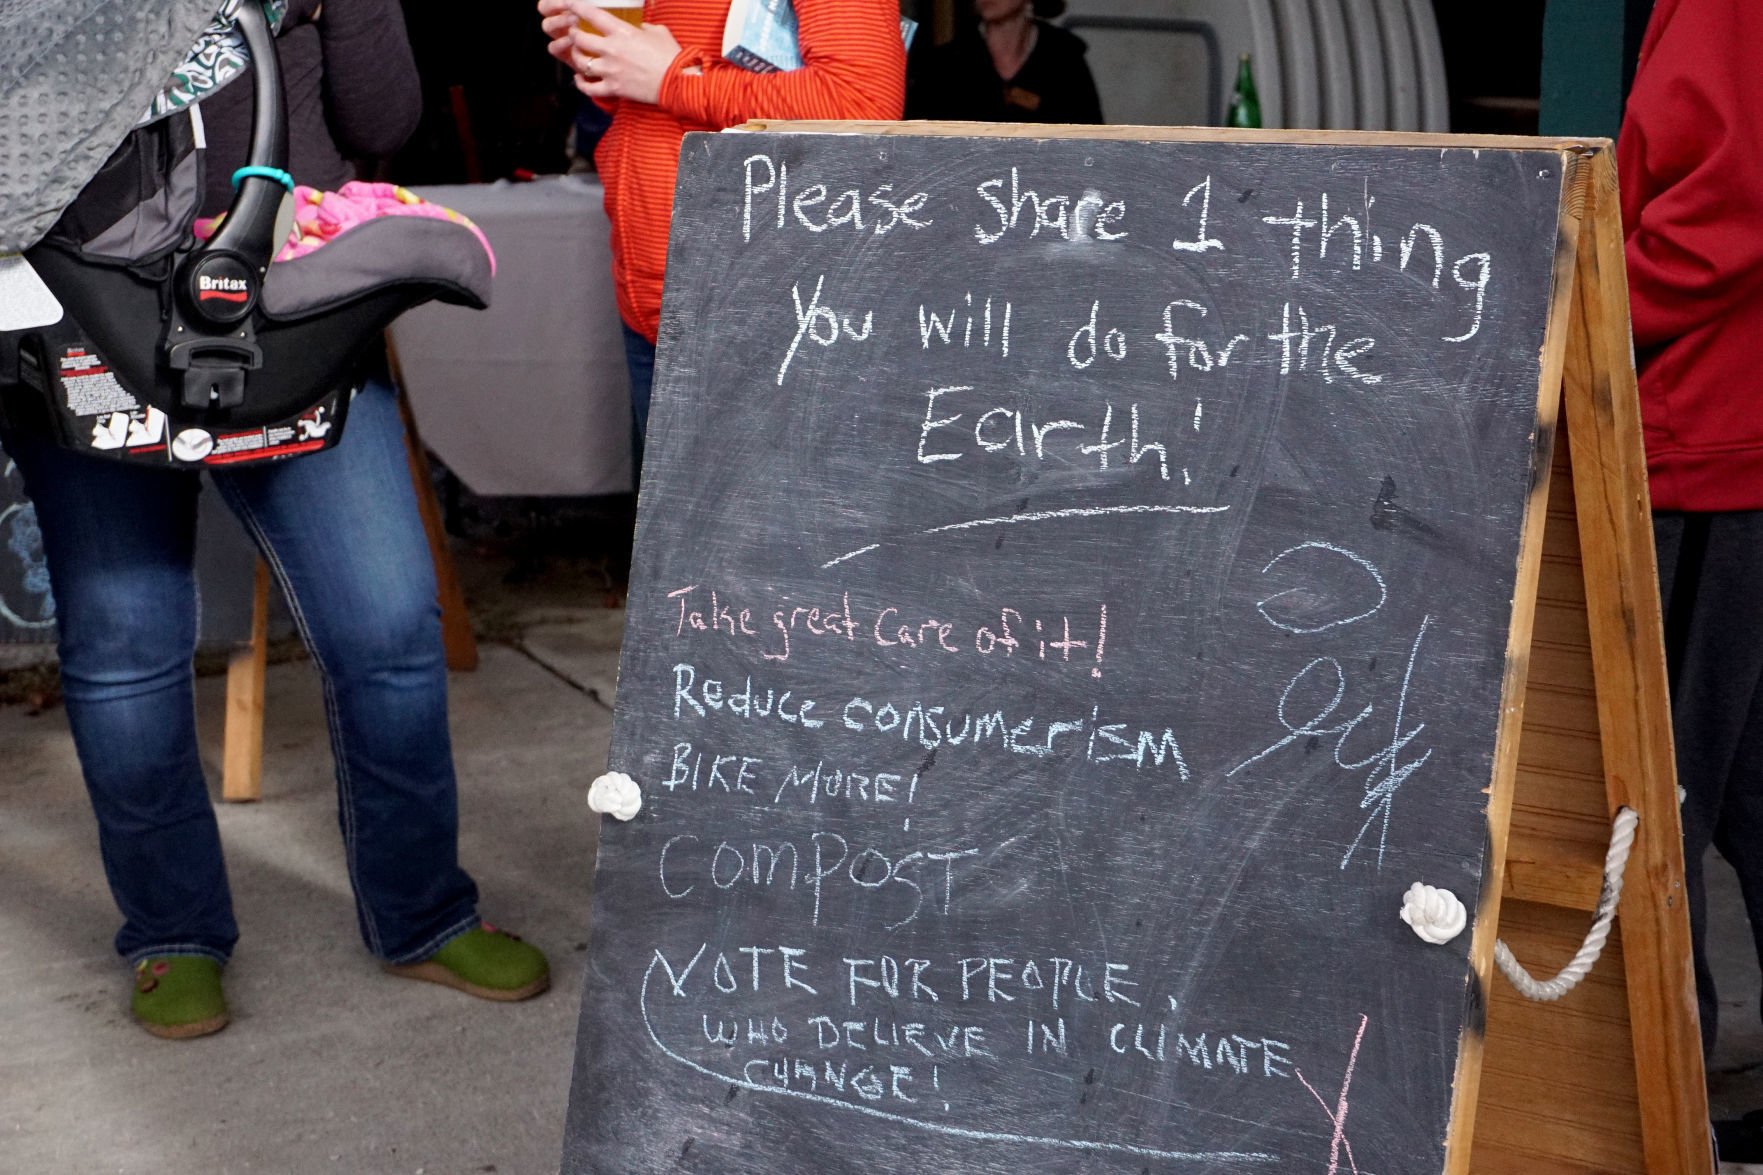 Britax
Please share 1 thing
You will do for the
Earth!
Take great care of it!
Reduce consumerism
BIKE MORE!
COMPOST
VOTE FOR PEOPLE,
WHO BELIEVE IN CLIMATE
CHANGE!